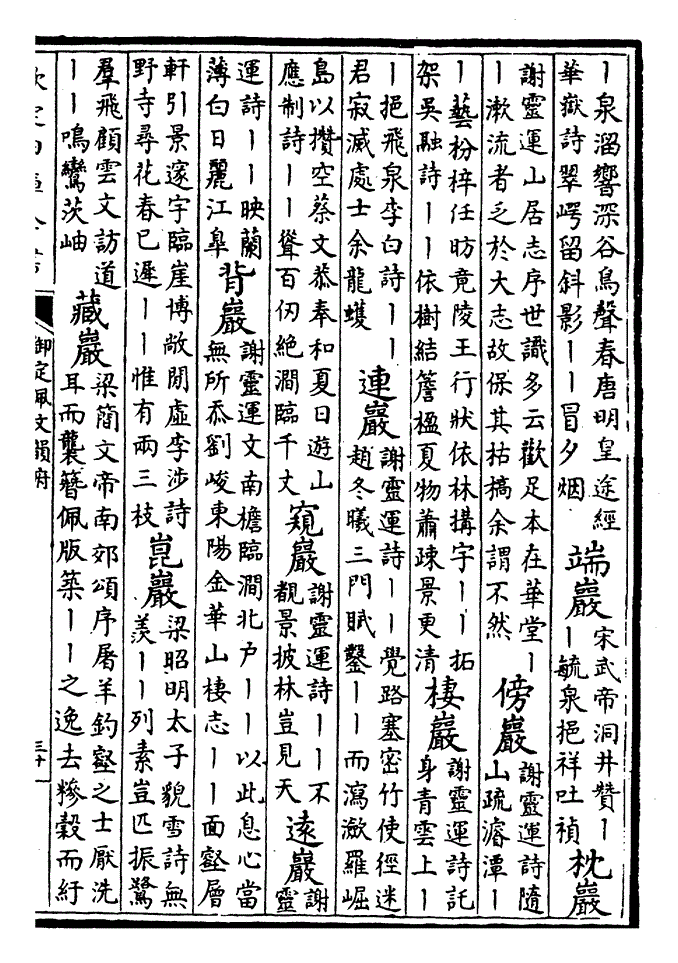 丨泉溜響深谷鳥聲春唐明皇途經
華嶽詩翠崿留斜影丨丨冒夕烟
端巖
宋武帝洞井贊丨
丨毓泉挹祥吐禎
枕巖
謝靈運山居志序世識多云歡足本在華堂丨
丨漱流者乏於大志故保其枯槁余謂不然
傍巖
謝靈運詩隨
山疏濬潭丨
丨藝枌梓任昉竟陵王行狀依林搆宇丨丨拓
架吳融詩丨丨依樹結簷楹夏物蕭疎景更清
棲巖
謝靈運詩託
身青雲上丨
丨挹飛泉李白詩丨丨
君寂滅處士余龍蠖
連巖
謝靈運詩丨丨覺路塞密竹使徑迷
趙冬曦三門賦鑿丨丨而瀉潋羅崛
島以攢空蔡文恭奉和夏日遊山
應制詩丨丨聳百仞絶澗臨千丈
窺巖
謝靈運詩丨丨不
覩景披林豈見天
遠巖
謝
靈
運詩丨丨映蘭
薄白日麗江皐
背巖
謝靈運文南檐臨澗北户丨丨以此息心當
無所忝劉峻東陽金華山棲志丨丨面壑層
軒引景邃宇臨崖博敞閒虛李涉詩
野寺尋花春已遲丨丨惟有兩三枝
崑巖
梁昭明太子貌雪詩無
羨丨丨列素豈匹振鷺
羣飛顧雲文訪道
丨丨鳴鸞茨岫
藏巖
梁簡文帝南郊頌序屠羊釣壑之士厭洗
耳而襲簪佩版築丨丨之逸去糝穀而紆
欽定四庫全書
御定佩文韻府
三十一